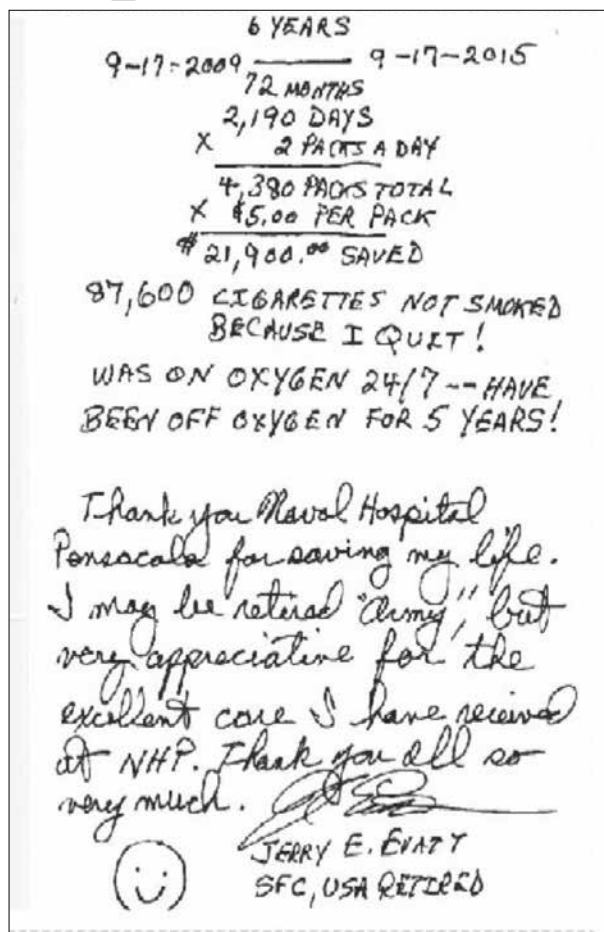 6 YEARS
9-17-2009 — 9-17-2015
72 MONTHS
2,190 DAYS
X 2 PACKS A DAY
4,380 PACKS TOTAL
X $5.00 PER PACK
$21,900.00 SAVED
87,600 CIGARETTES NOT SMOKED
BECAUSE I QUIT!
WAS ON OXYGEN 24/7 -- HAVE
BEEN OFF OXYGEN FOR 5 YEARS!
Thank you Naval Hospital
Pensacola for saving my life.
I may be retired "Army", but
very appreciative for the
excellent care I have received
at NHP. Thank you all so
very much.
JERRY E. EVATT
SFC, USA RETIRED